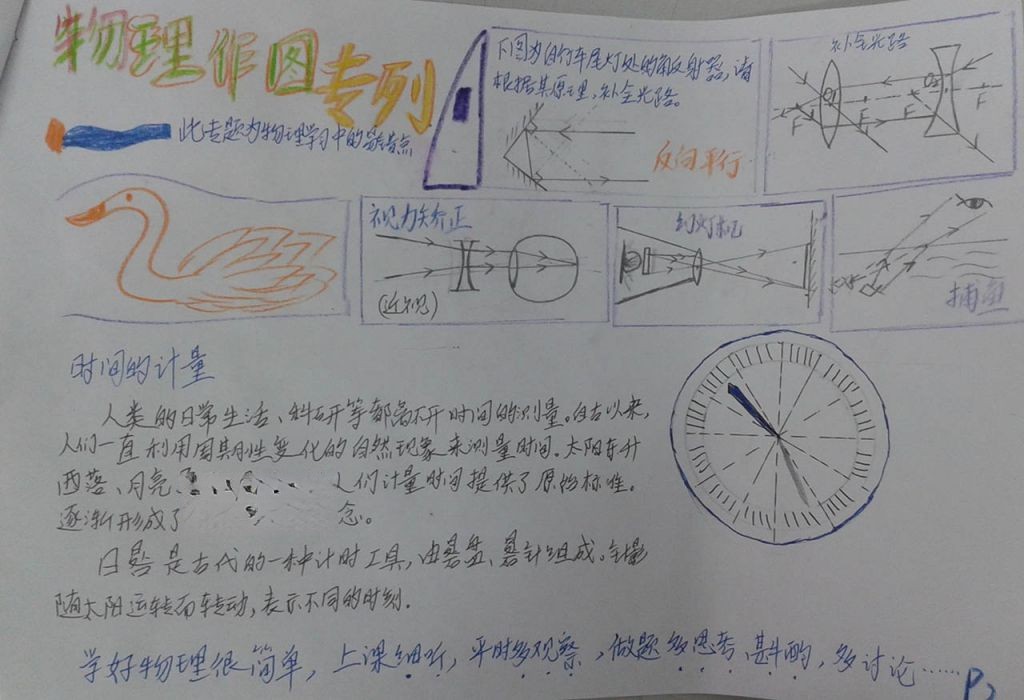 物理作图专列
此专题为物理学习中的易错点
下图为自行车尾灯处的反射器,请
根据其原理,补全光路。
反向平行
补全光路
O₁
O₂
F
F
F
F
视力矫正
(近视)
幻灯机
捕鱼
时间的计量
人类的日常生活、科研等都离不开时间的测量。自古以来,
人们一直利用周期性变化的自然现象来测量时间。太阳东升
西落、月亮
人们计量时间提供了原始标准。
逐渐形成了
念。
日晷是古代的一种计时工具,由晷盘、晷针组成。针影
随太阳运转而转动,表示不同的时刻.
学好物理很简单,上课细听,平时多观察,做题多思考、斟酌,多讨论……
P₂